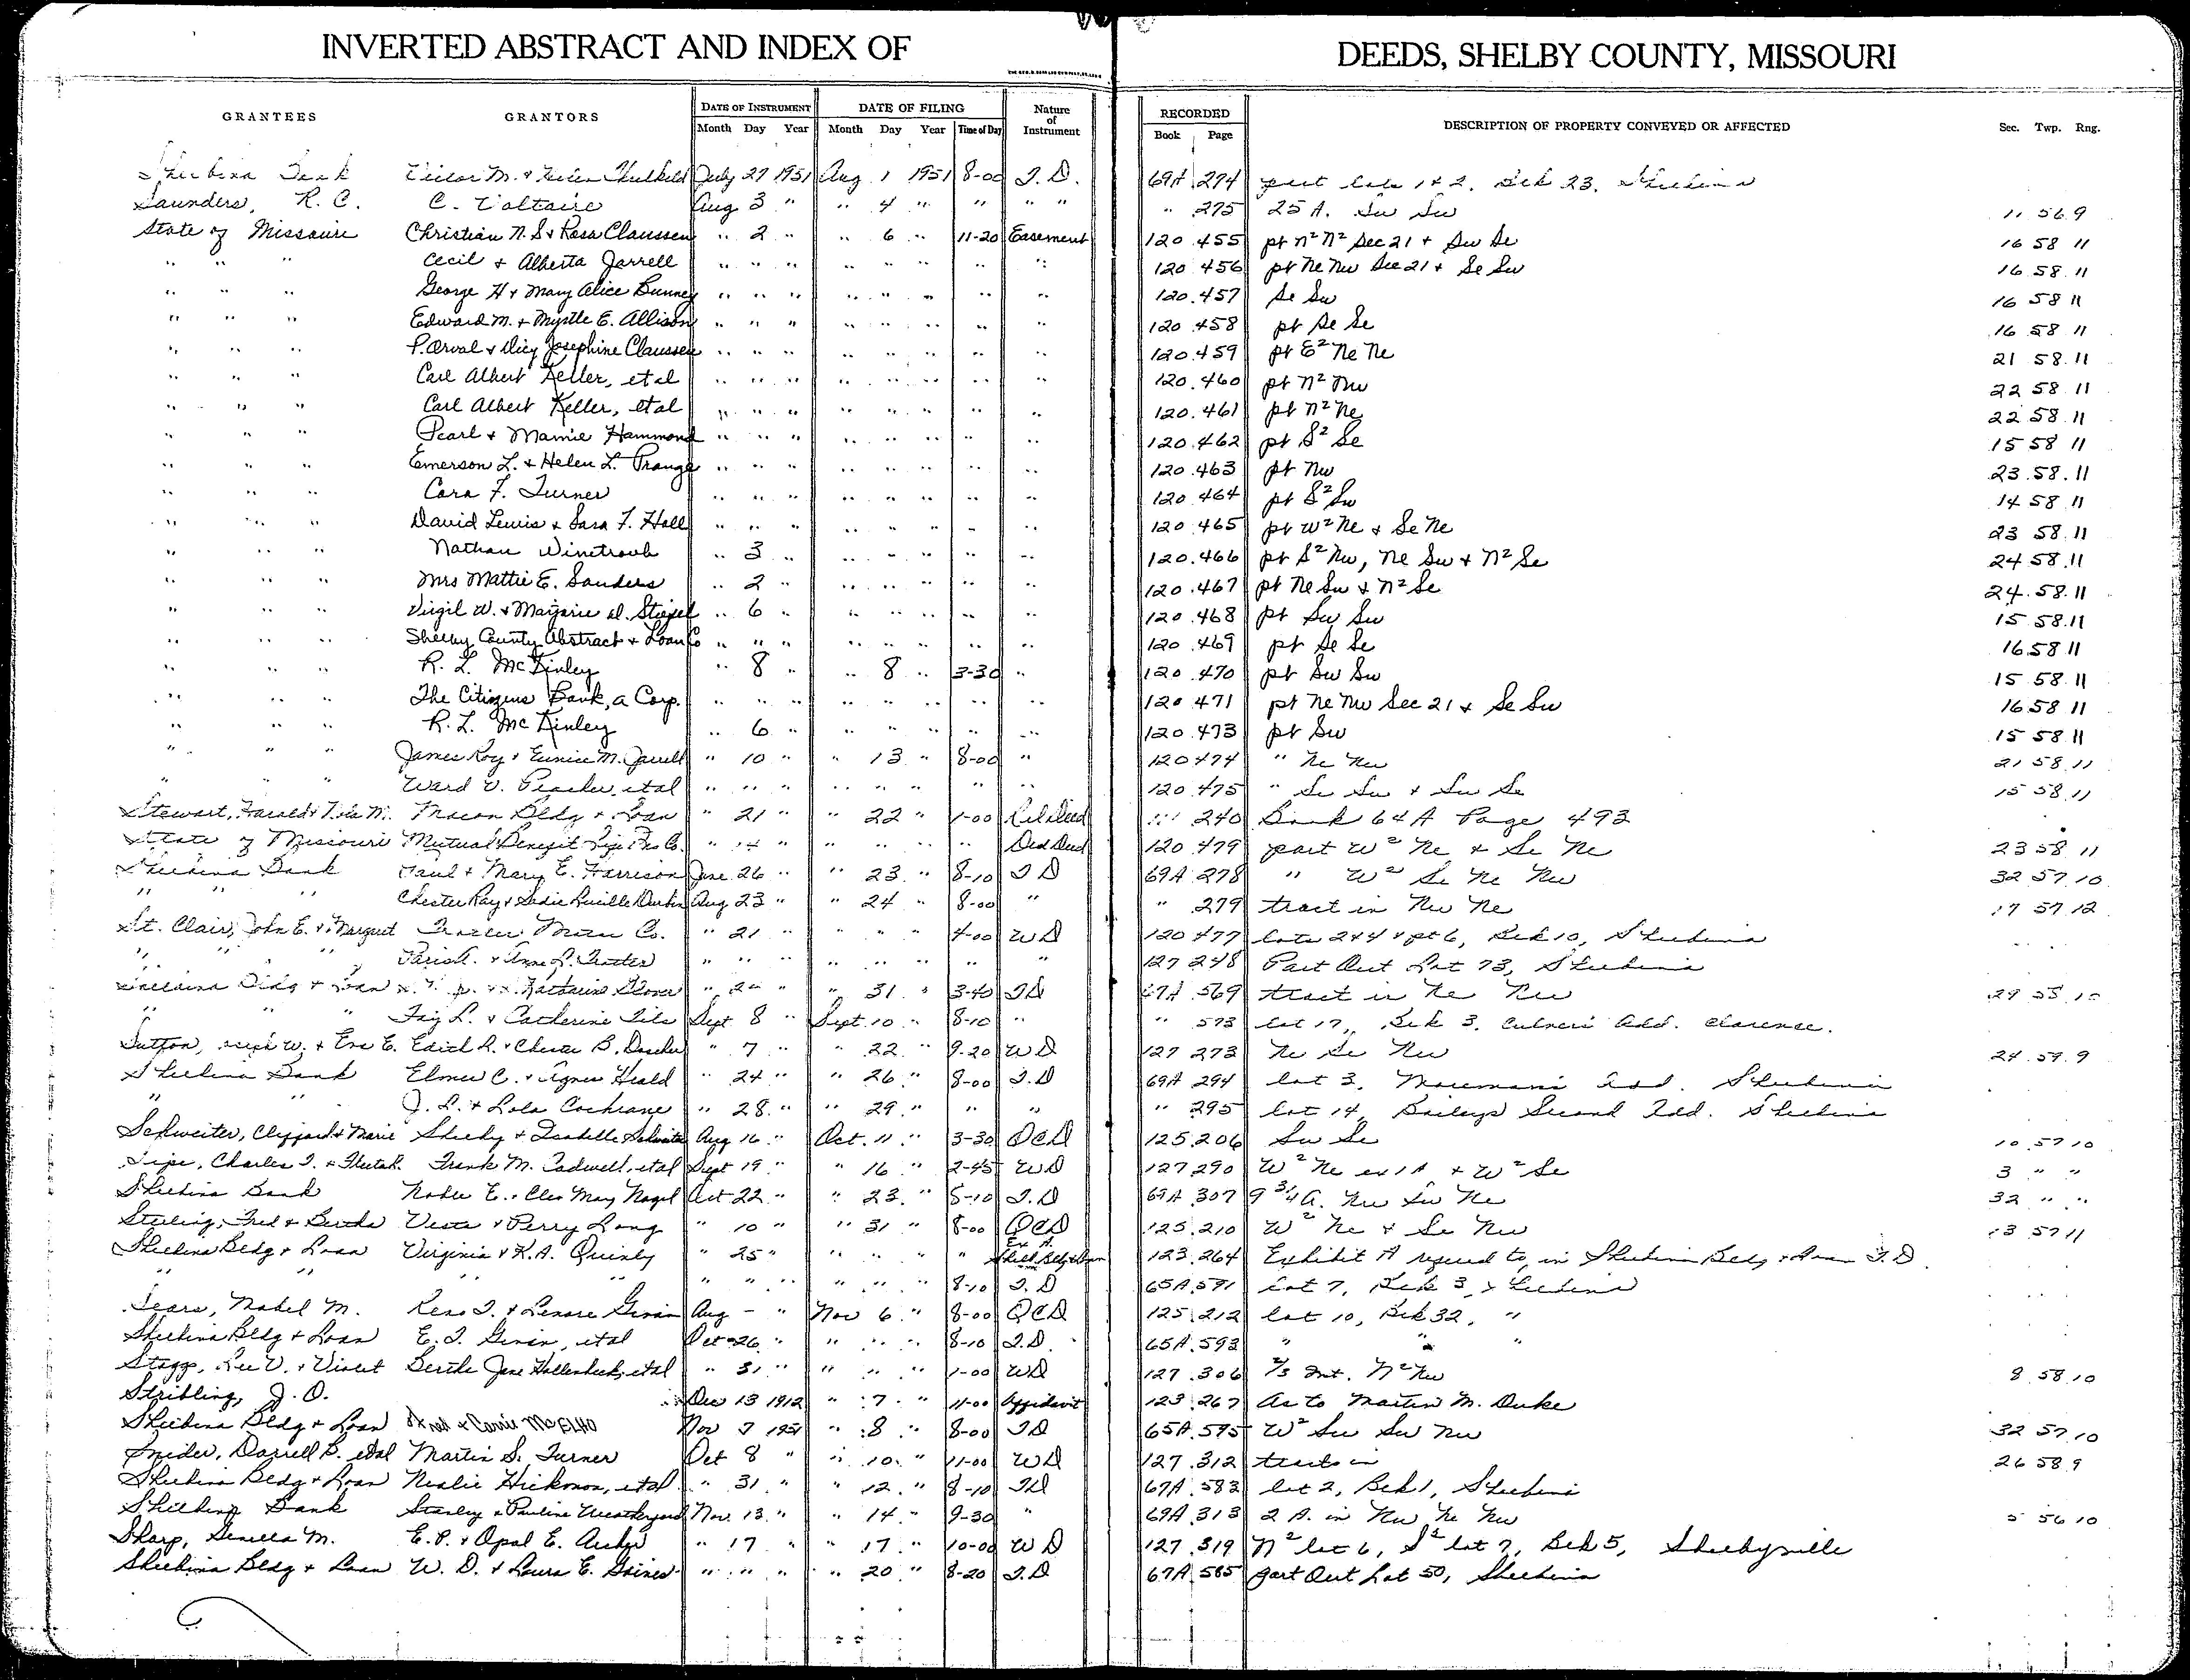 INVERTED ABSTRACT AND INDEX OF DEEDS, SHELBY COUNTY, MISSOURI
GRANTEES GRANTORS DATE OF INSTRUMENT DATE OF FILING Nature of Instrument RECORDED DESCRIPTION OF PROPERTY CONVEYED OR AFFECTED Sec. Twp. Rng.
Month Day Year Month Day Year Time of Day Book Page
Shelbina Bank July 27 1951 Aug 1 1951 8-00 T.D. 69A 274 part lots 1 & 2, Blk 23, Shelbina
Saunders, R. C. C. Voltaire Aug 3 " " 4 " " " " " 275 25 A. Sw Sw 11 56 9
State of Missouri Christian N. S. & Rosa Claussen " 2 " " 6 " 11-20 Easement 120 455 pt N² N² Sec 21 & Sw Se 16 58 11
" " " Cecil & Alberta Jarrell " " " " " " " " 120 456 pt Ne Nw Sec 21 & Se Sw 16 58 11
" " " George H & Mary Alice Bunney " " " " " " " " 120 457 Se Sw 16 58 11
" " " Edward M. & Myrtle E. Allison " " " " " " " " 120 458 pt Se Se 16 58 11
" " " P. Orval & Dicy Josephine Claussen " " " " " " " " 120 459 pt E² Ne Ne 21 58 11
" " " Carl Albert Keller, et al " " " " " " " " 120 460 pt N² Nw 22 58 11
" " " Carl Albert Keller, et al " " " " " " " " 120 461 pt N² Ne 22 58 11
" " " Pearl & Mamie Hammond " " " " " " " " 120 462 pt S² Se 15 58 11
" " " Emerson L. & Helen L. Prange " " " " " " " " 120 463 pt Nw 23 58 11
" " " Cora F. Turner " " " " " " " " 120 464 pt S² Sw 14 58 11
" " " David Lewis & Sara F. Hall " " " " " " " " 120 465 pt W² Ne & Se Ne 23 58 11
" " " Nathan Winetroub " 3 " " " " " " 120 466 pt S² Nw, Ne Sw & N² Se 24 58 11
" " " Mrs Mattie E. Sanders " 2 " " " " " " 120 467 pt Ne Sw & N² Se 24 58 11
" " " Virgil W. & Marjorie D. Stogel " 6 " " " " " " 120 468 pt Sw Sw 15 58 11
" " " Shelby County Abstract & Loan Co " " " " " " " " 120 469 pt Se Se 16 58 11
" " " R. L. McKinley " 8 " " 8 " 3-30 " 120 470 pt Sw Sw 15 58 11
" " " The Citizens Bank, a Corp. " " " " " " " " 120 471 pt Ne Nw Sec 21 & Se Sw 16 58 11
" " " R. L. McKinley " 6 " " " " " " 120 473 pt Sw 15 58 11
" " " James Roy & Eunice M. Jarrell " 10 " " 13 " 8-00 " 120 474 " Ne Nw 21 58 11
" " " Ward V. et al " " " " " " " " 120 475 " Se Sw & Sw Se 15 58 11
Stewart, Harold & M. Macon Bldg & Loan " 21 " " 22 " 1-00 Rel Deed 240 Book 64A Page 493
State of Missouri Mutual Benefit Life Ins Co. " 14 " " " " " Ded Deed 120 479 part W² Ne & Se Ne 23 58 11
Shelbina Bank Paul & Mary E. Harrison June 26 " " 23 " 8-10 T D 69A 278 " W² Se Ne Nw 32 57 10
" " Chester Ray & Sadie Lucille Durbin Aug 23 " " 24 " 8-00 " " 279 tract in Nw Ne 17 57 12
St. Clair, John E. & Margaret Co. " 21 " " " " 4-00 W D 120 477 lots 2 & 4 & pt 6, Blk 10, Shelbina
" " " " " " " " " " " 127 248 Part Out Lot 73, Shelbina
Shelbina Bldg & Loan & Katharine " " " 31 " 3-40 T D 67A 569 tract in Ne Nw
" " " Fay L. & Catherine Sept 8 " Sept 10 " 8-10 " " 573 lot 17, Blk 3, Culvers Add. Clarence.
Sutton, W. & Eva E. Edith R. & Chester B. " 7 " " 22 " 9-20 W D 127 273 Ne Se Nw 24 59 9
Shelbina Bank Elmer C. & Agnes Heald " 24 " " 26 " 8-00 T.D 69A 294 lot 3, Add. Shelbina
" " J. L. & Lola Cochrane " 28 " " 29 " " " " 295 lot 14, Baileys Second Add. Shelbina
Schweiter, Clifford & Marie Shelby & Isabelle Schweiter Aug 16 " Oct. 11 " 3-30 QCD 125 206 Sw Se 10 57 10
Sipe, Charles T. & Frank M. Cadwell, et al Sept 19 " " 16 " 2-45 W D 127 290 W² Ne ex 1 A & W² Se 3 " "
Shelbina Bank E. & Cleo May Nagel Oct 22 " " 23 " 8-10 T.D 69A 307 9 3/4 A. Nw Sw Ne 32 " "
Sterling, Fred & Bertha & Perry Long " 10 " " 31 " 8-00 QCD 125 210 W² Ne & Se Nw 13 57 11
Shelbina Bldg & Loan Virginia & K. A. Quinly " 25 " " " " " Ex A. Shelb Bldg & Loan 123 264 Exhibit A referred to in Shelbina Bldg & Loan T.D.
" " " " " " " " " " 8-10 T.D 65A 591 Lot 7, Blk 3, Shelbina
Sears, Mabel M. Reno T. & Lenore Givan Aug - " Nov 6 " 8-00 QCD 125 212 lot 10, Blk 32, "
Shelbina Bldg & Loan E. T. Givan, et al Oct 26 " " " " 8-10 T.D. 65A 593 " " "
Staggs, Lee V. & Violet Bertha Jane Hollenbeck, et al " 31 " " " " 1-00 W D 127 306 2/3 Int. N² Nw 8 58 10
Stribling, J. O. Dec 13 1912 " 7 " 11-00 Affidavit 123 267 As to Martin M. Duke
Shelbina Bldg & Loan & Carrie Nov 7 1951 " 8 " 8-00 T D 65A 595 W² Sw Sw Nw 32 57 10
Snider, Darrell B. et al Martin S. Turner Oct 8 " " 10 " 11-00 W D 127 312 tracts in 26 58 9
Shelbina Bldg & Loan Neslie Hickman, et al " 31 " " 12 " 8-10 T D 67A 583 lot 2, Blk 1, Shelbina
Shelbina Bank Stanley & Pauline Weatherford Nov. 13 " " 14 " 9-30 " 69A 313 2 A. in Nw Ne Nw 5 56 10
Sharp, M. E. P. & Opal E. " 17 " " 17 " 10-00 W D 127 319 N² lot 6, S² lot 7, Blk 5, Shelbyville
Shelbina Bldg & Loan W. D. & Laura E. Gaines " " " " 20 " 8-20 T.D 67A 585 part Out Lot 50, Shelbina